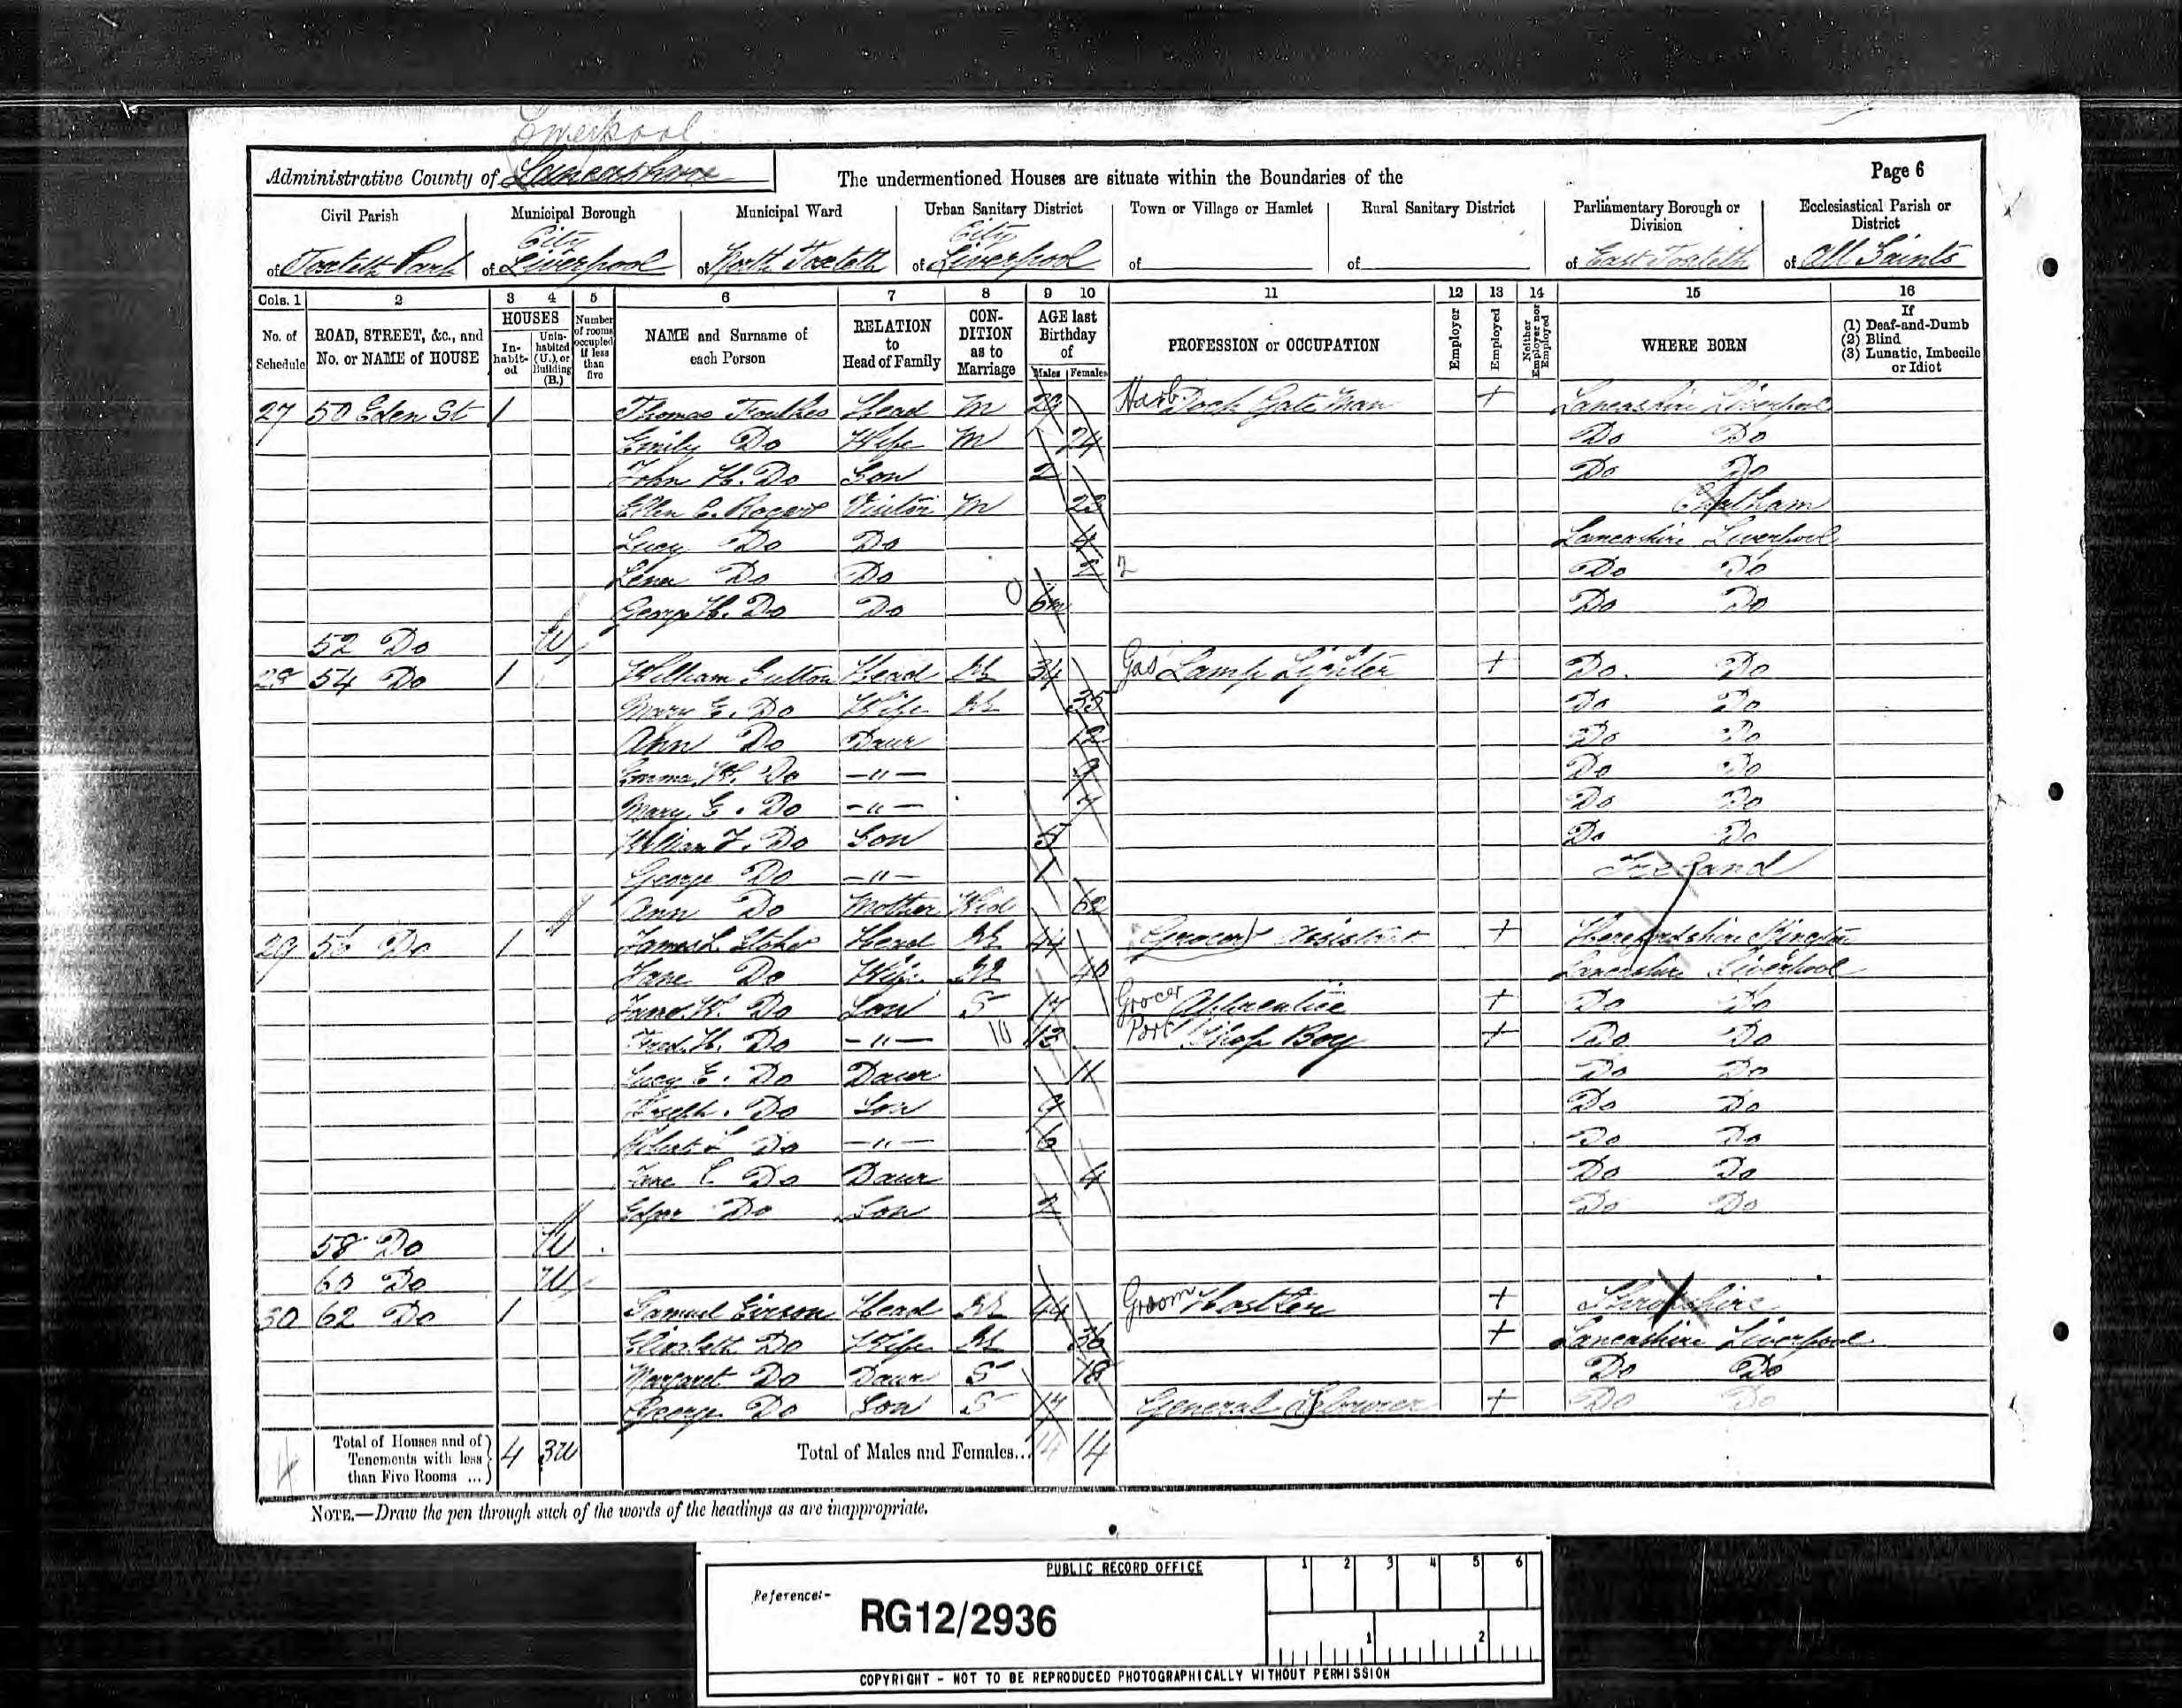 Liverpool
Administrative County of Lancashire
The undermentioned Houses are situate within the Boundaries of the
Page 6
Civil Parish
Municipal Borough
Municipal Ward
Urban Sanitary District
Town or Village or Hamlet
Rural Sanitary District
Parliamentary Borough or Division
Ecclesiastical Parish or District
of Toxteth Park
of City Liverpool
of North Toxteth
of City Liverpool
of
of
of East Toxteth
of All Saints
Cols. 1 2 3 4 5 6 7 8 9 10 11 12 13 14 15 16
No. of Schedule
ROAD, STREET, &c., and No. or NAME of HOUSE
HOUSES
In-habit-ed
Unin-habited (U.), or Building (B.)
Number of rooms occupied if less than five
NAME and Surname of each Person
RELATION to Head of Family
CON-DITION as to Marriage
AGE last Birthday of
Males Females
PROFESSION or OCCUPATION
Employer
Employed
Neither Employer nor Employed
WHERE BORN
If
(1) Deaf-and-Dumb
(2) Blind
(3) Lunatic, Imbecile or Idiot
27 50 Eden St 1 Thomas Foulkes Head M 29 Harb Dock Gate Man + Lancashire Liverpool
Emily Do Wife M 24 Do Do
John H. Do Son 2 Do Do
Ellen C. Rogers Visitor M 23 Chatham
Lucy Do Do 4 Lancashire Liverpool
Lena Do Do 2 2 Do Do
George H. Do Do 0 6m Do Do
52 Do U
28 54 Do 1 William Sutton Head M 34 Gas Lamp Lighter + Do. Do
Mary E. Do Wife M 35 Do Do
Ann Do Daur 12 Do Do
Emma Do -"- 9 Do Do
Mary E. Do -"- 7 Do Do
William F. Do Son 5 Do Do
George Do -"- 1 Ireland
Ann Do Mother Wid 62
29 56 Do 1 James L. Stokes Head M 44 Grocers Assistant + Herefordshire Kington
Jane Do Wife M 40 Lancashire Liverpool
James W. Do Son S 17 Grocer Apprentice + Do Do
Fred. H. Do -"- 10 13 Port Shop Boy + Do Do
Lucy E. Do Daur 11 Do Do
Joseph. Do Son 9 Do Do
Robert L Do -"- 6 Do Do
Jane C. Do Daur 4 Do Do
Edgar Do Son 2 Do Do
58 Do U
60 Do U
30 62 Do 1 Samuel Head M 44 Groom Hostler + Shropshire
Elizabeth Do Wife M 36 + Lancashire Liverpool
Margaret Do Daur S 18 Do Do
George Do Son S 17 General Labourer + Do Do
4 Total of Houses and of Tenements with less than Five Rooms ... 4 3U Total of Males and Females... 14 14
NOTE.—Draw the pen through such of the words of the headings as are inappropriate.
PUBLIC RECORD OFFICE
Reference:-
RG12/2936
1 2 3 4 5 6
1 2
COPYRIGHT - NOT TO BE REPRODUCED PHOTOGRAPHICALLY WITHOUT PERMISSION